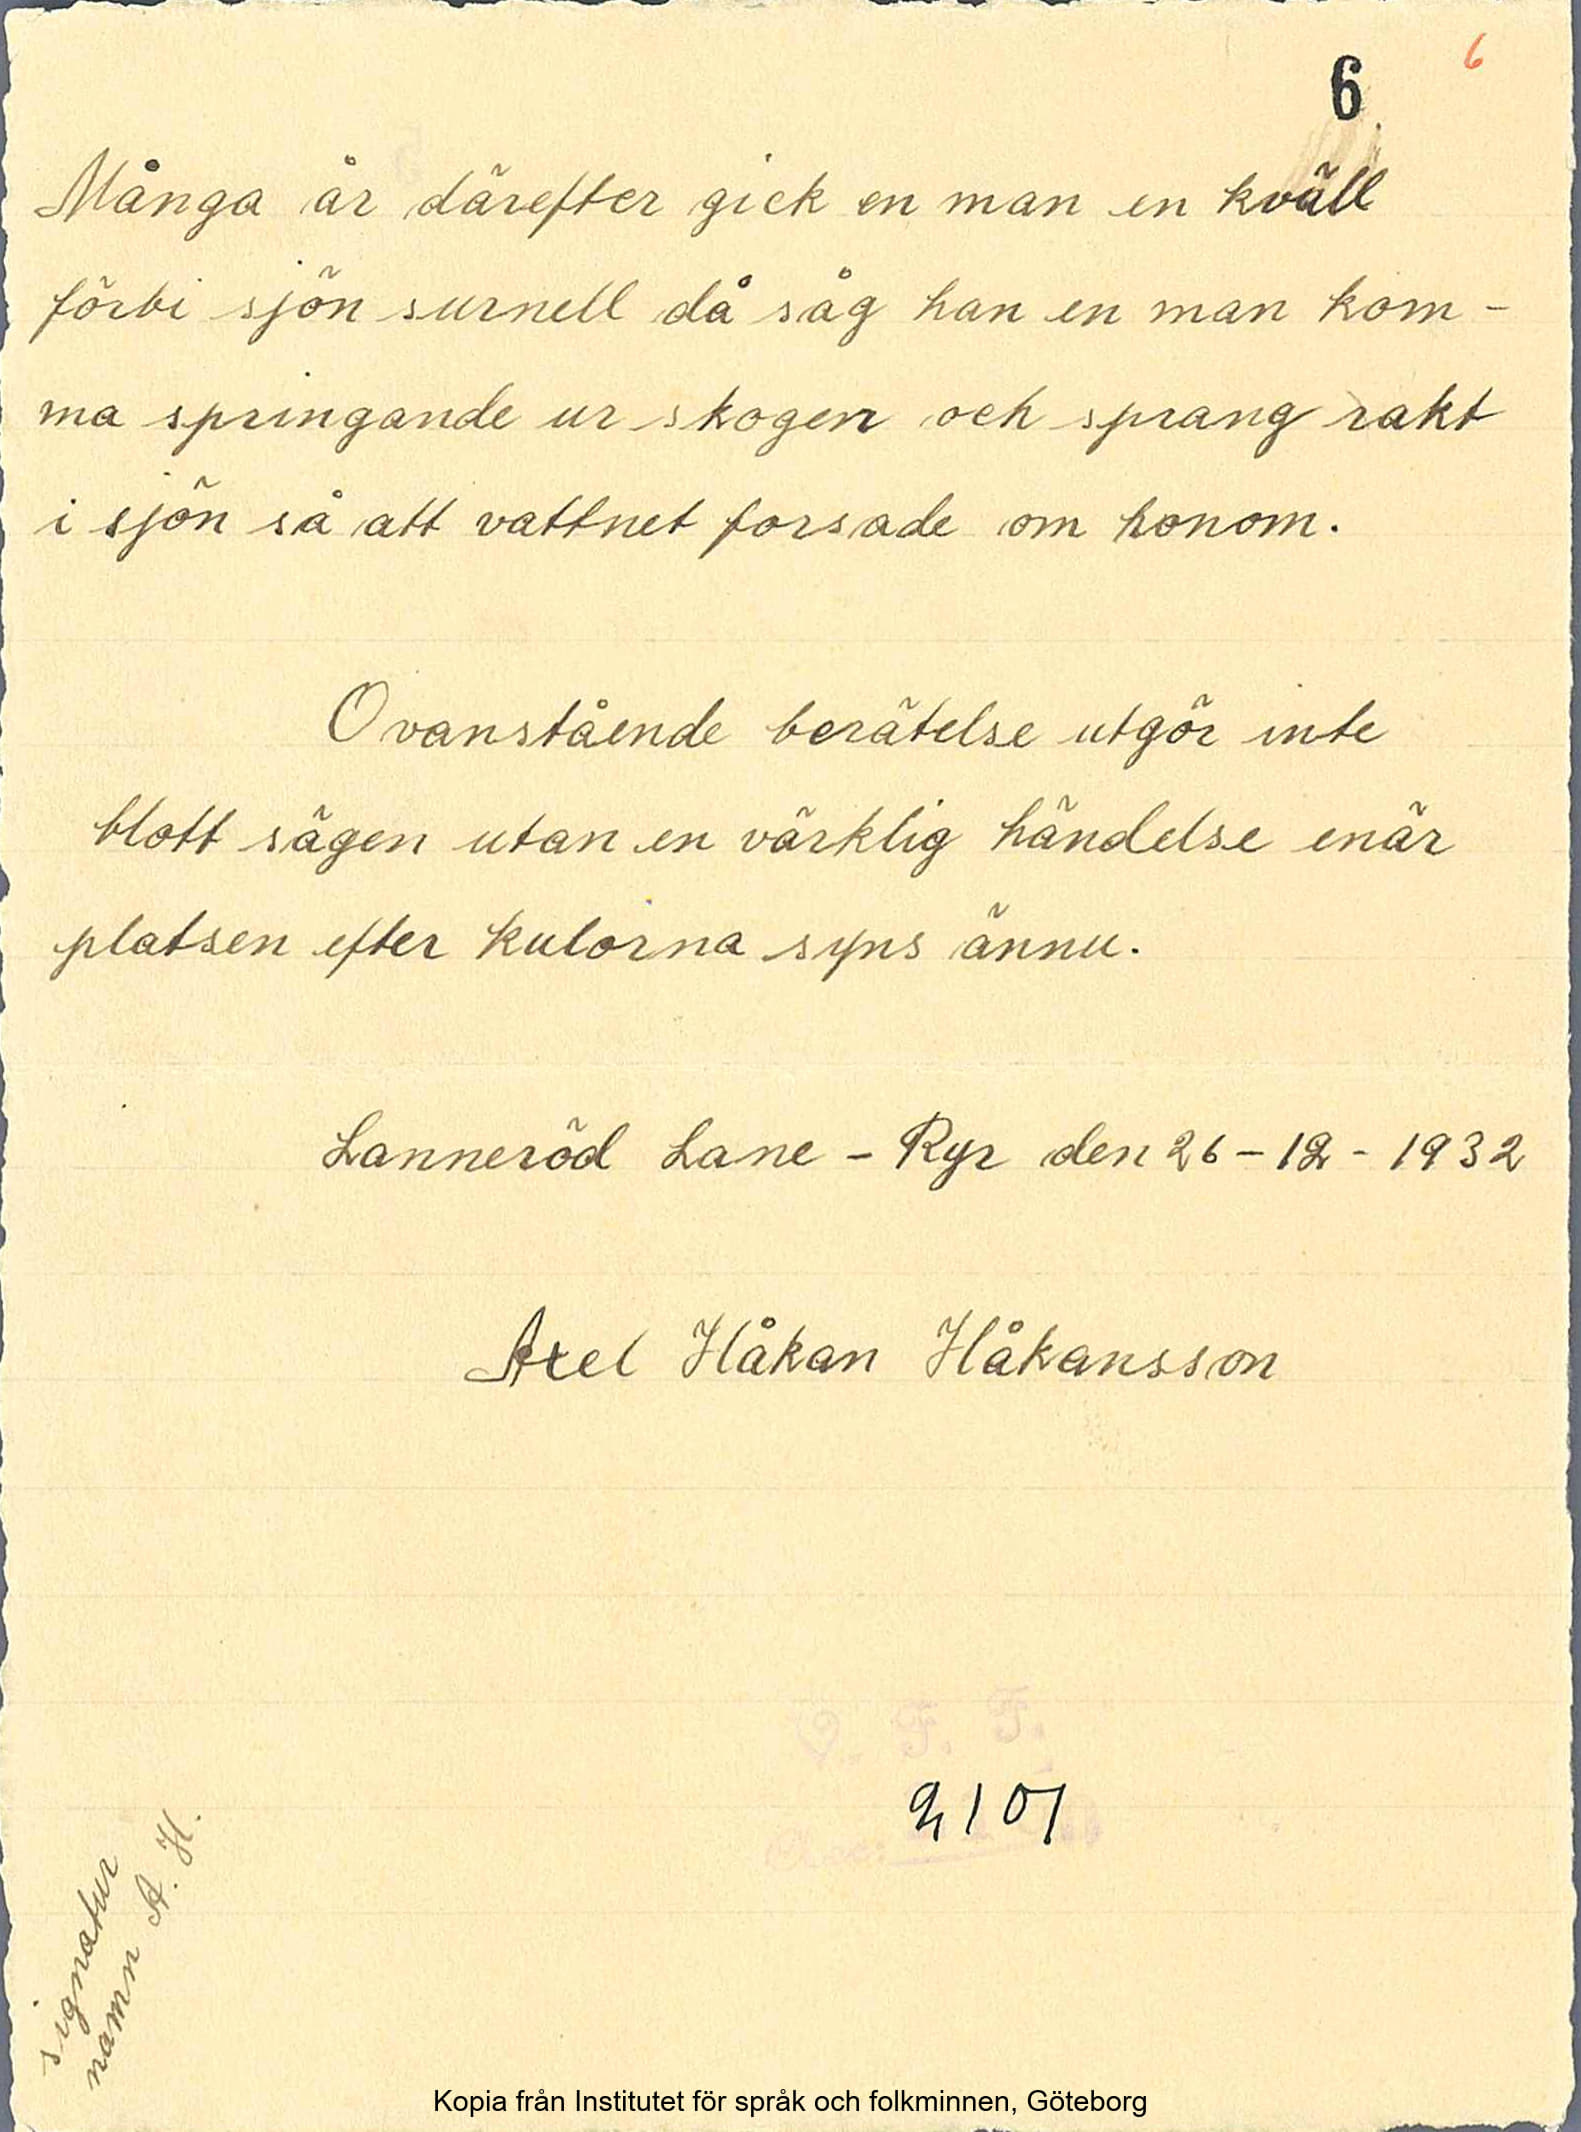 6
6
Många år därefter gick en man en kväll
förbi sjön surnell då såg han en man kom-
ma springande ur skogen och sprang rakt
i sjön så att vattnet forsade om honom.
Ovanstående berätelse utgör inte
blott sägen utan en värklig händelse enär
platsen efter kulorna syns ännu.
Lanneröd Lane - Ryr den 26 - 12 - 1932
Axel Håkan Håkansson
V. F. F.
2101
Acc:
signatur
namn A. H.
Kopia från Institutet för språk och folkminnen, Göteborg